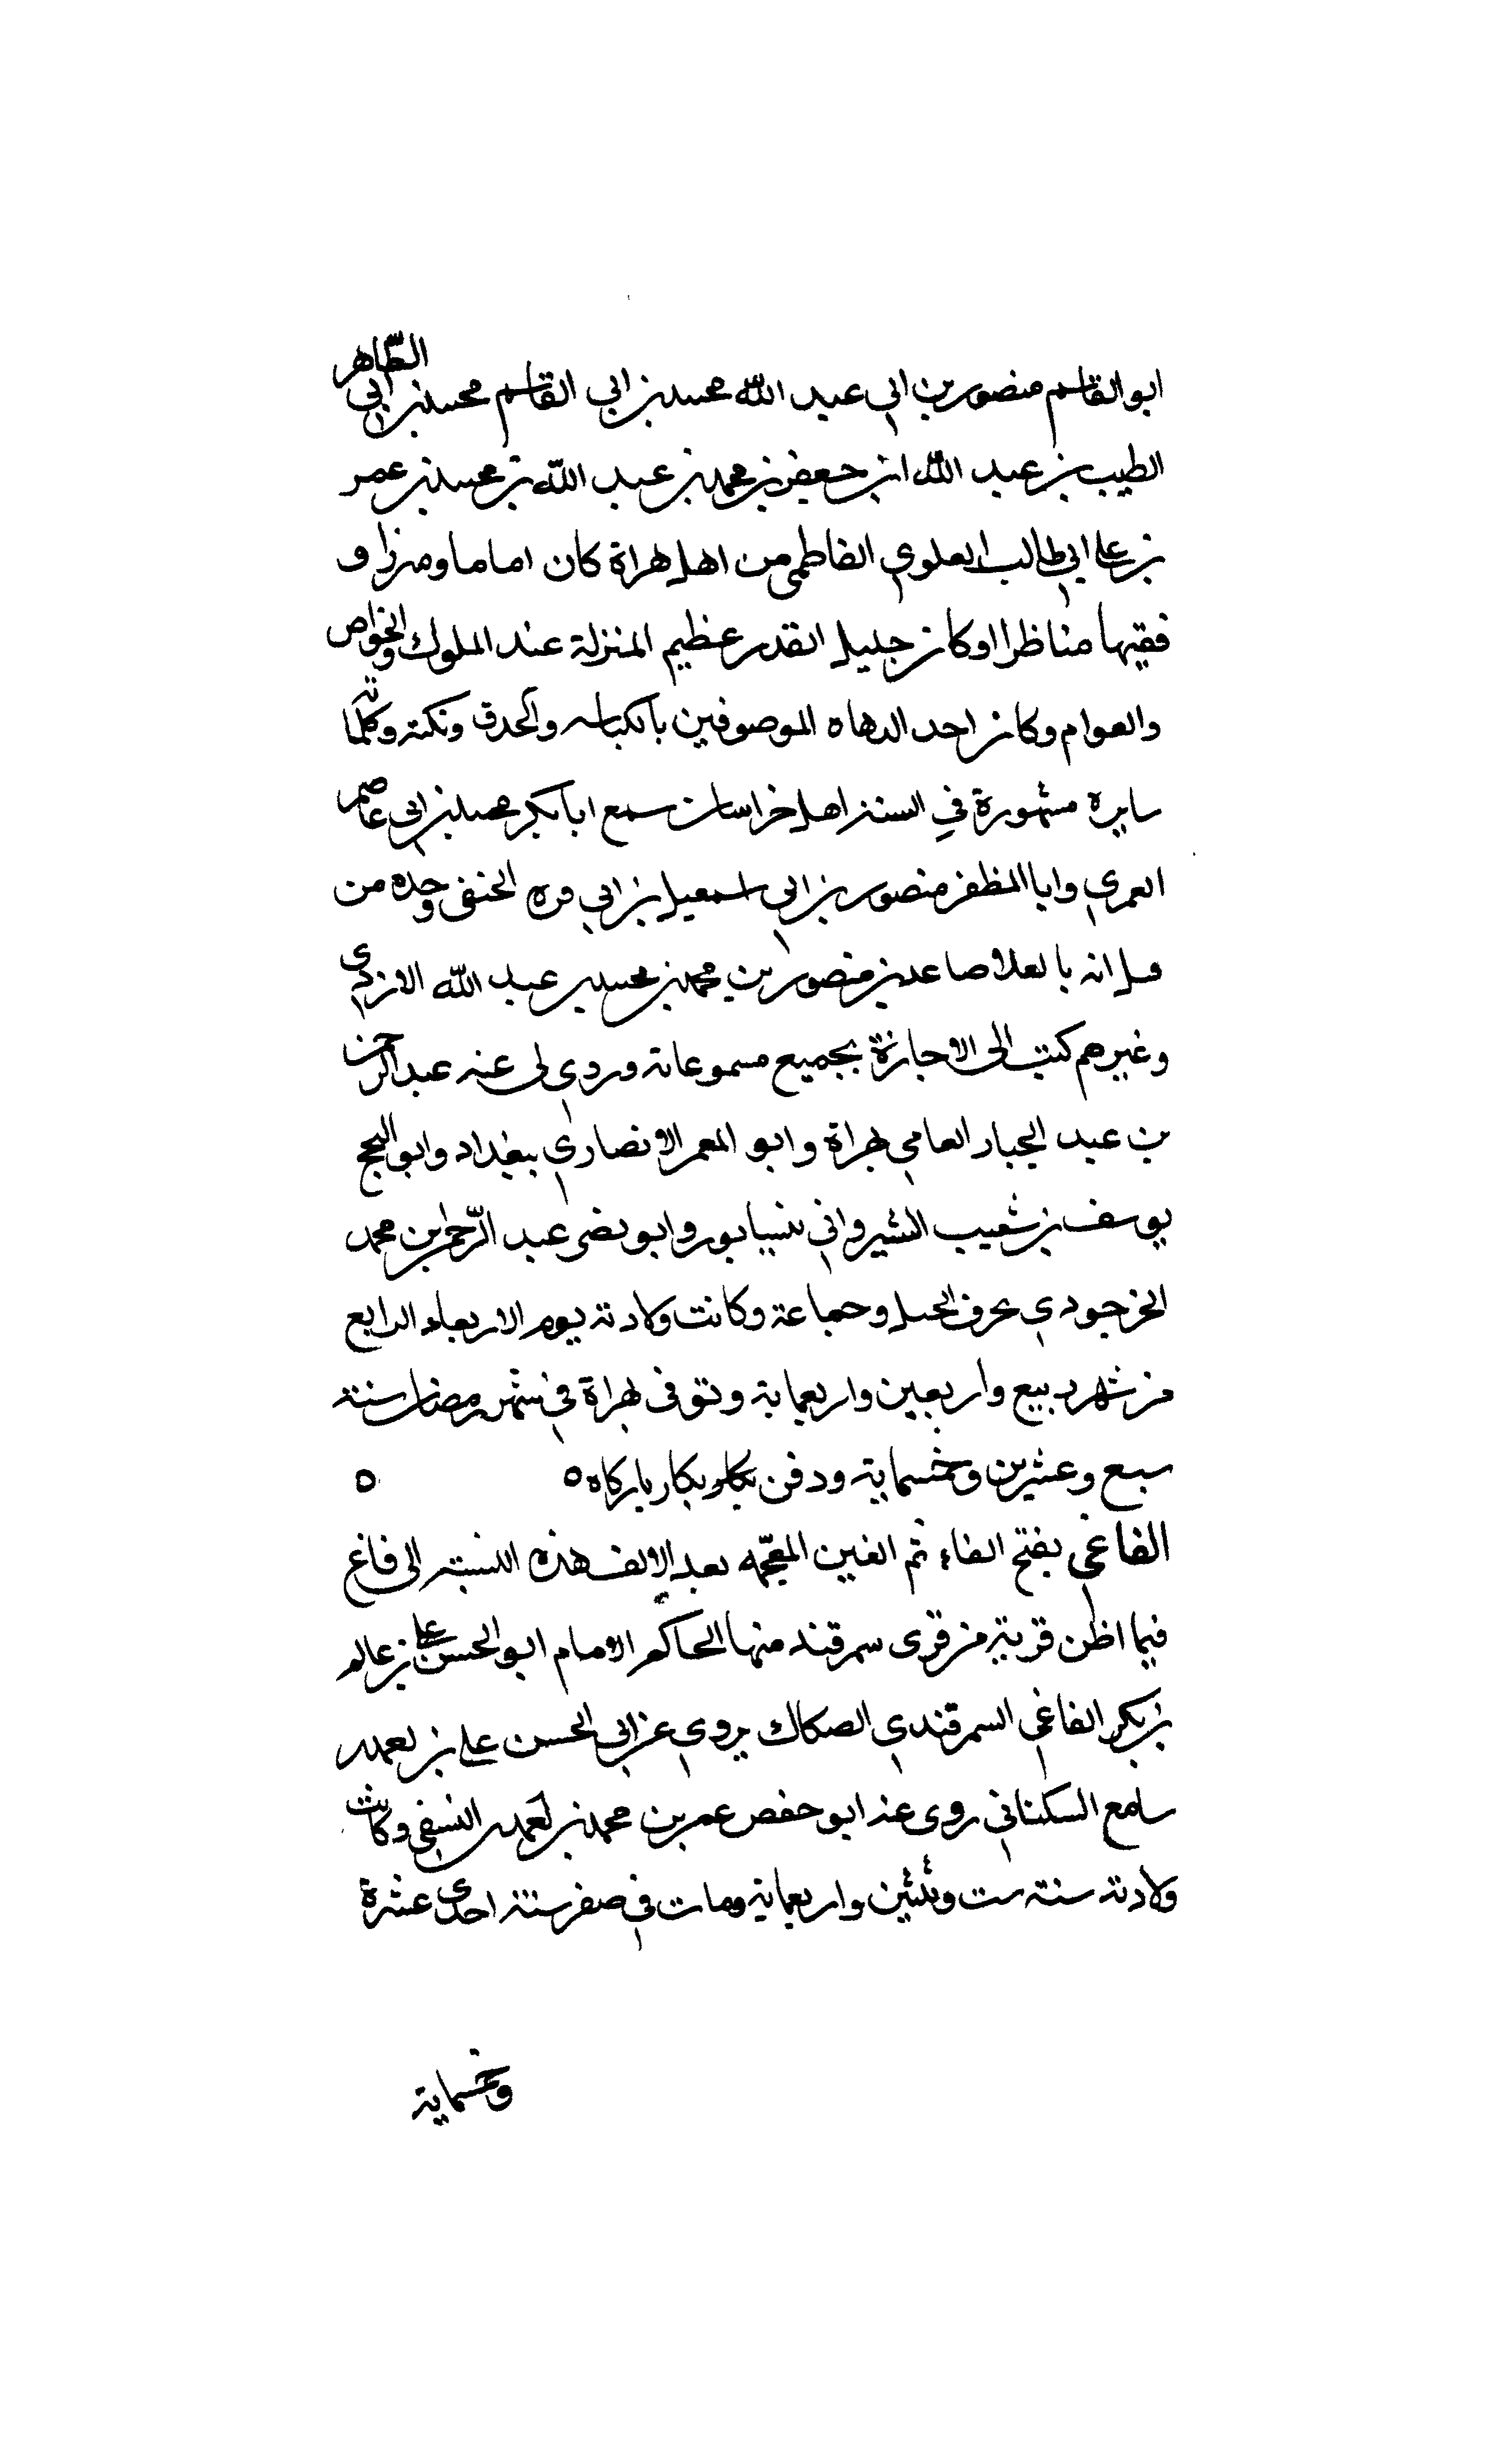 ابو القاسم منصور بن ابي عبد الله محمد بن ابي القاسم محمد بن ابي الطاهر
الطيب بن عبد الله ابن جعفر بن محمد بن عبد الله بن محمد بن عمر
بن علي ابي طالب العلوي الفاطمي من اهل هراة كان اماما و
فقيها مناظرا وكان جليل القدر عظيم المنزلة عند الملوك والخواص
والعوام وكان احد الدهاه الموصوفين بالكياسه والحدق ونكته وكلماته
سايره مشهورة في السنة اهل خراسان سمع ابا بكر محمد بن ابي عاصم
العمري وابا المظفر منصور بن ابي اسمعيل بن ابي قره الحنفي وجده من
انه با لعلا صاعد بن منصور بن محمد بن محمد بن عبد الله الازدي
وغيرهم كتب الى الاجازة بجميع مسموعاته وروي لي عنه عبد الرحمن
بن عبد الجبار العامي بهراة وابو المعمر الانصاري ببغداد وابو
يوسف بن شعيب الشيرواني بنيسابور وابو نضر عبد الرحمن بن محمد
الخرجودي وجماعة وكانت ولادته يوم الاربعاء الرابع
من شهر ربيع واربعين واربعماية وتوفى بهراة في شهر رمضان سنة
سبع وعشرين وخمسماية ودفن
الفاغي بفتح الفاء ثم الغين المعجمه بعد الالف هذه النسبة الى فاغ
فيما اظن قرية من قرى سمرقند منها الحاكم الامام ابو الحسن علي بن عالم
بن بكر الفاغي السمرقندي الصكاك يروي عن ابي الحسن علي بن احمد
سامع السكناني روى عنه ابو حفص عمر بن محمد بن احمد النسفي وكانت
ولادته سنة ست وثلثين واربعماية ومات في صفر سنة احدى عشرة
وخمسماية